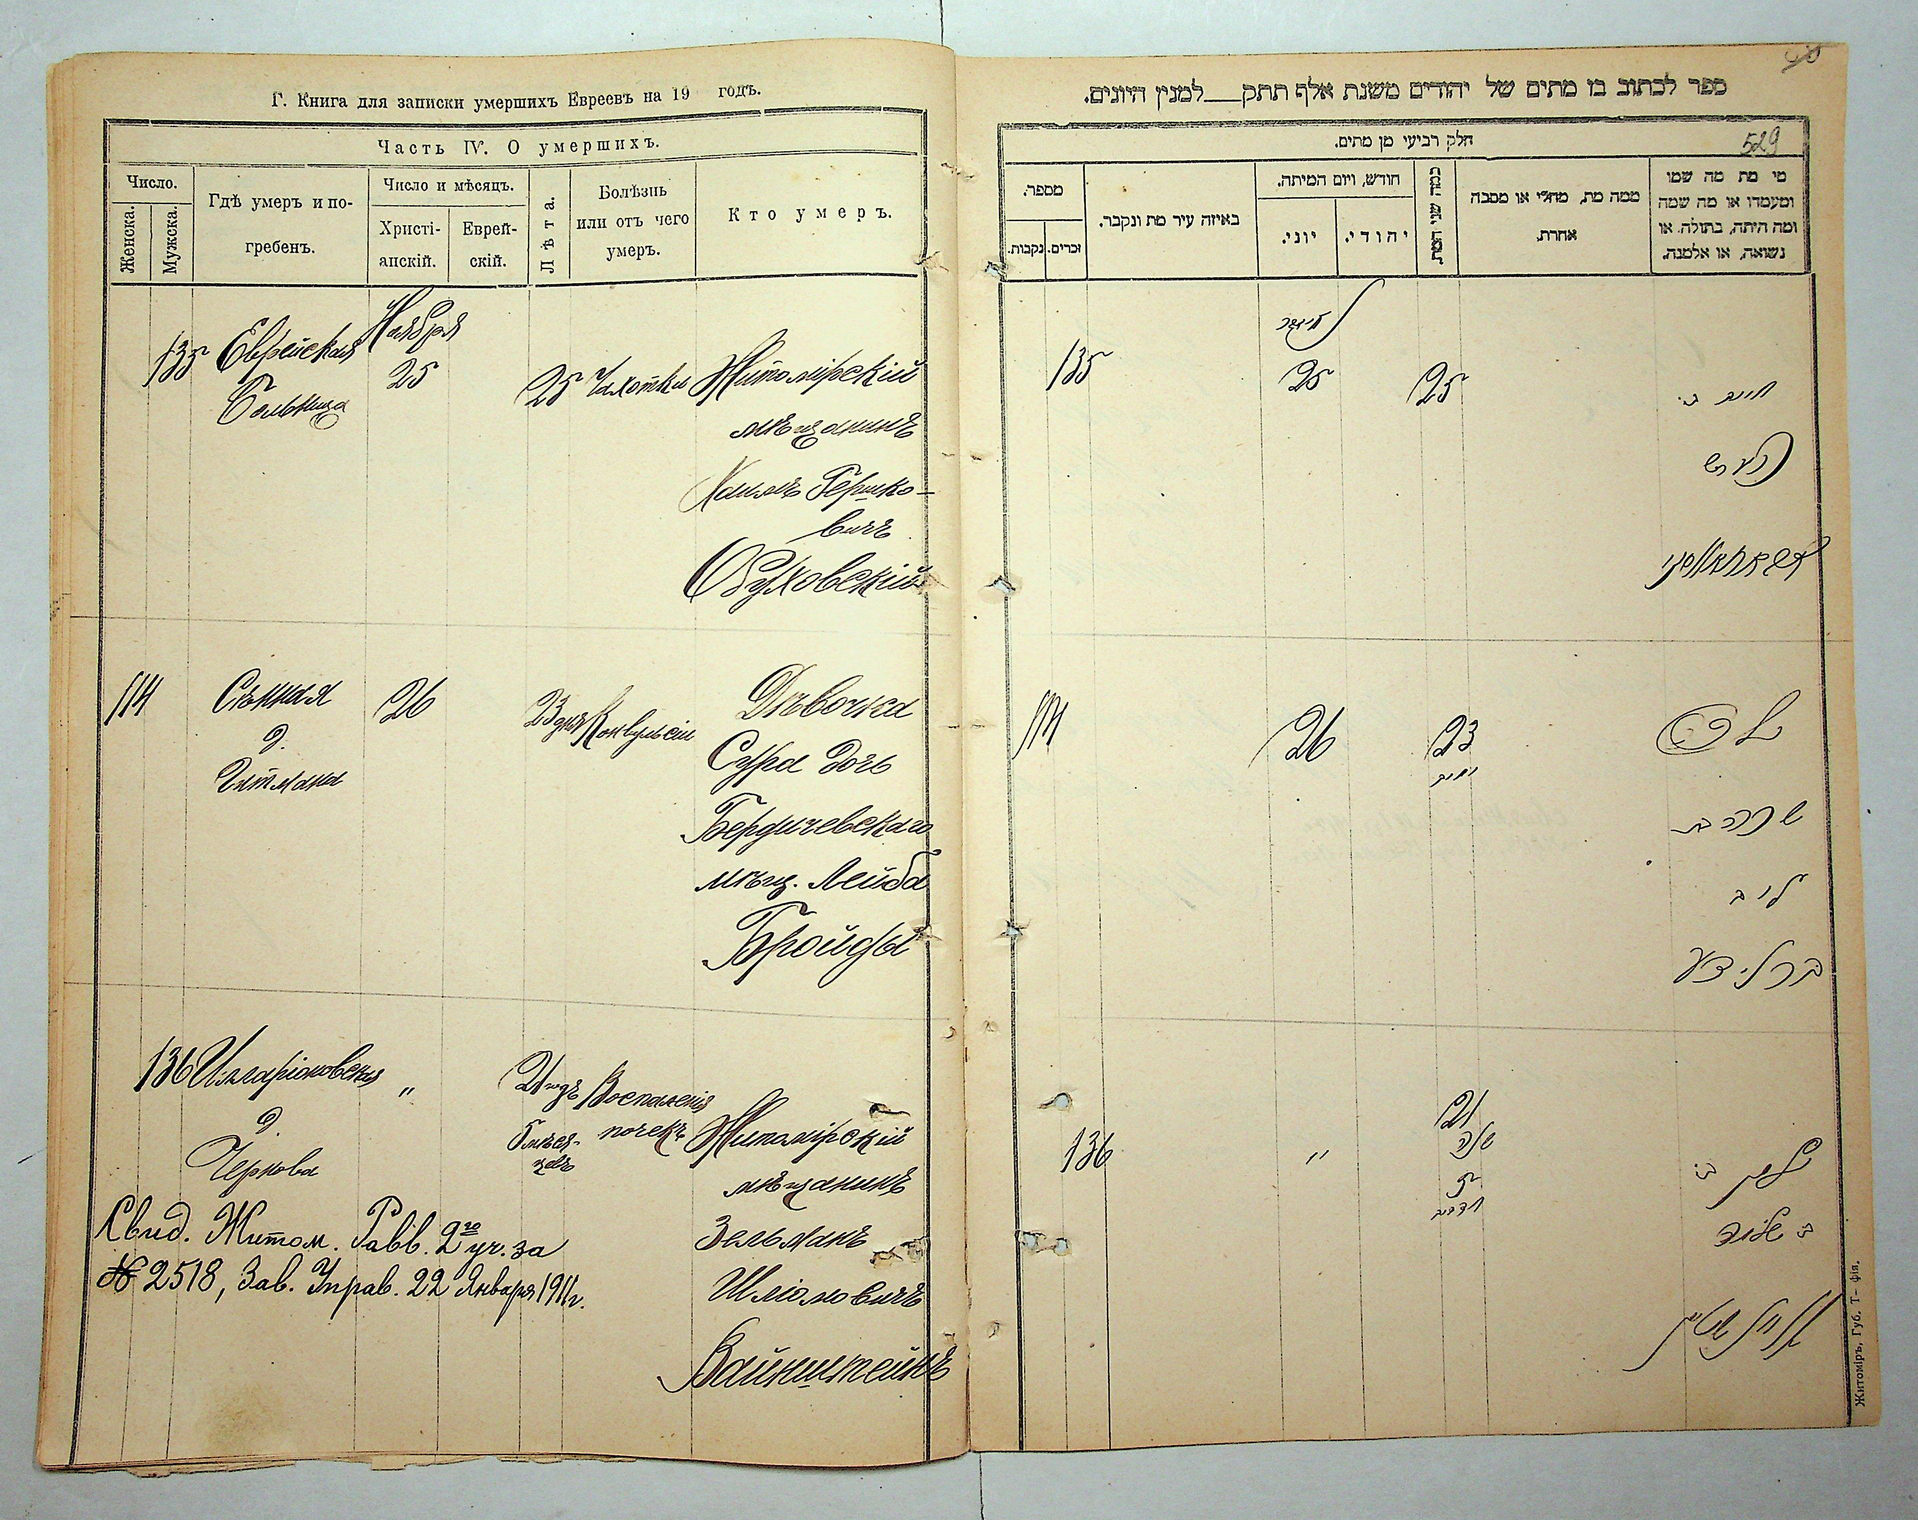 Г. Книга для записки умершихъ Евреевъ на 19 годъ.
Часть IV. О умершихъ.
Число.
Женска.
Мужска.
Гдѣ умеръ и по-
гребенъ.
Число и мѣсяцъ.
Христі-
анскій.
Еврей-
скій.
Лѣта.
Болѣзнь
или отъ чего
умеръ.
Кто умеръ.
135 Еврейская
Больница
Ноября
25
25 Чахотки
Житомірскій
мѣщанинъ
Хаимъ Гершко-
вичъ
Обуховскій
114 Сѣнная
д.
Гитмана
26
23 дня Конвульсіи
Дѣвочка
Сура дочь
Бердичевскаго
мѣщ. Лейба
Бройды
136 Илларіоновская
д.
Чернова
"
21 годъ
5 мѣся-
цевъ
Воспаленія
почекъ
Житомірскій
мѣщанинъ
Зельманъ
Шліомовичъ
Вайнштейнъ
Свид. Житом. Равв. 2го уч. за
№ 2518, Зав. Управ. 22 Января 1911 г.
ספר לכתוב בו מתים של יהודים משנת אלף תתק___למנין היונים.
529
חלק רביעי מן מתים.
מספר.
נקבות.
זכרים.
באיזה עיר מת ונקבר.
חודש, ויום המיתה.
יוני.
יהודי.
כמה שני המת
ממה מת, מחלי או מסבה
אחרת.
מי מת מה שמו
ומעמדו או מה שמה
ומה היתה, בתולה או
נשואה, או אלמנה.
135
25
25
חיים ב׳
הערש
114
26
23
ימים
שרה בת
ליב
ברוידע
136
"
21
שנה
5
חדשים
זלמן ב׳
ר׳ שלמה
וויינשטיין
Житоміръ, Губ. Т-фія.